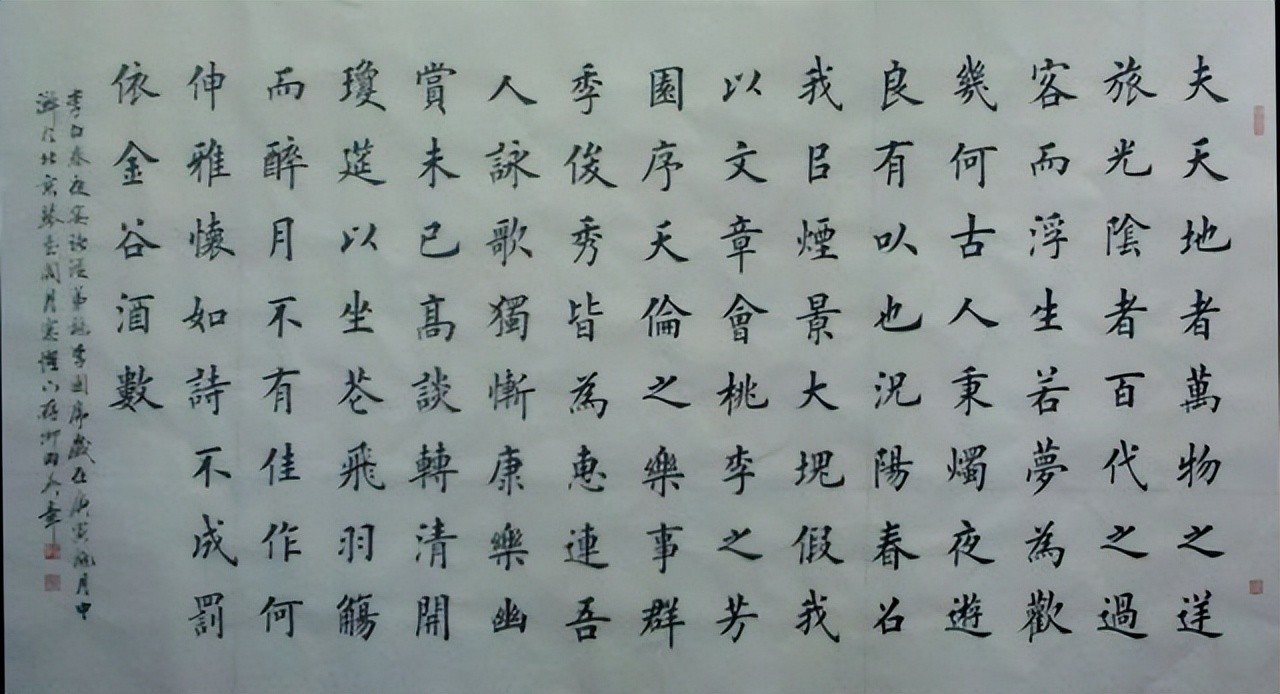 夫天地者萬物之逆
旅光陰者百代之過
容而浮生若夢為歡
幾何古人秉燭夜遊
良有以也況陽春召
我㠯煙景大塊假我
以文章會桃李之芳
園序天倫之樂事群
季俊秀皆為惠連吾
人詠歌獨慚康樂幽
賞未已高談轉清開
瓊筵以坐花飛羽觴
而醉月不有佳作何
伸雅懷如詩不成罰
依金谷酒數
李白春夜宴諸從弟桃李園序歲在庚寅桃月中
澣於北京